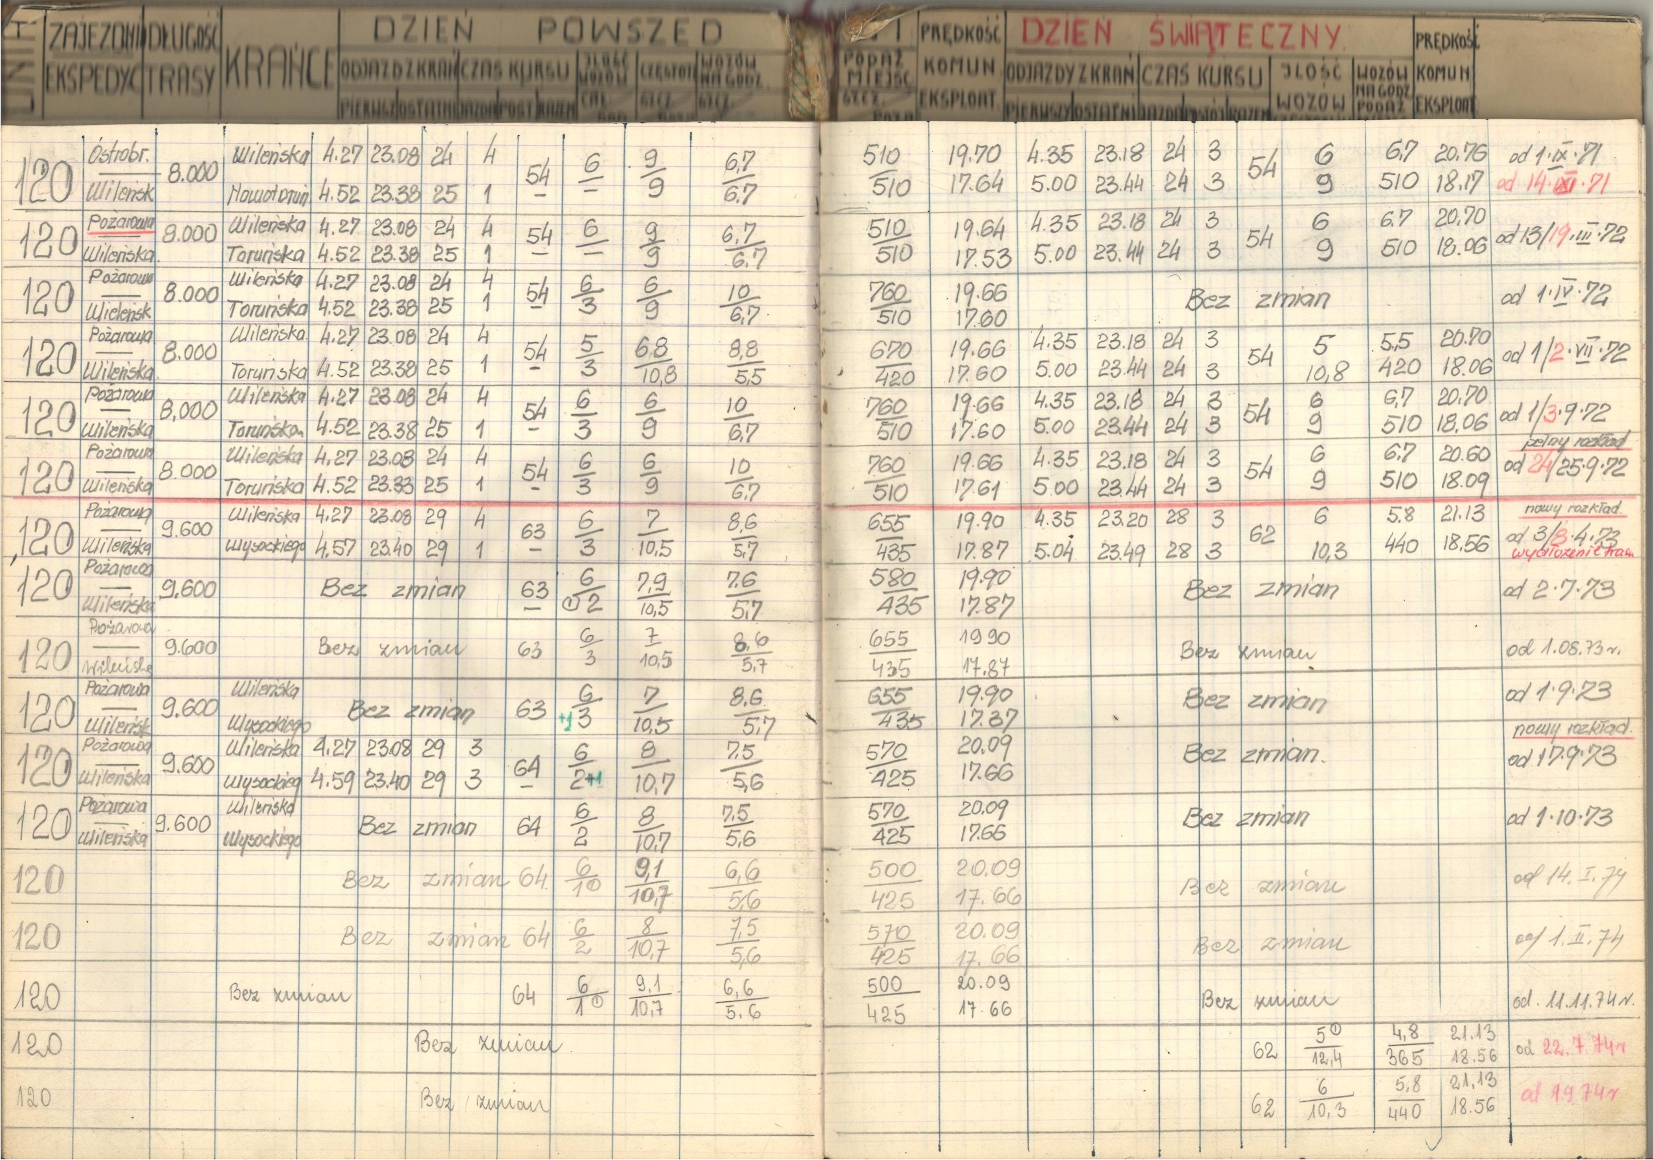 ZAJEZDNI DŁUGOŚĆ KRAŃCE DZIEŃ POWSZED
EKSPEDYC TRASY ODJAZD Z KRAŃ CZAS KURSU JLOŚĆ WOZÓW CZĘSTOT WOZÓW NA GODZ.
PIERWSZ OSTATNI JAZDA POST RAZEM SZCZ. SZCZ.
PODAŻ MIEJSC SZCZ. PRĘDKOŚĆ KOMUN EKSPLOAT. DZIEŃ ŚWIĄTECZNY. PRĘDKOŚĆ KOMUN EKSPLOAT
ODJAZDY Z KRAŃ CZAS KURSU JLOŚĆ WOZÓW WOZÓW NA GODZ PODAŻ
PIERWSZY OSTATNI JAZDA RAZEM
120 Ostrobr. 8.000 Wileńska 4.27 23.08 24 4 54 6 9 6,7 510 19.70 4.35 23.18 24 3 54 6 6,7 20.76 od 1.IX.71
Wileńsk Nowotoruń 4.52 23.38 25 1 – – 9 6.7 510 17.64 5.00 23.44 24 3 9 510 18.17 od 14.XI.71
120 Pożarowa 8.000 Wileńska 4.27 23.08 24 4 54 6 9 6,7 510 19.64 4.35 23.18 24 3 54 6 6.7 20,70 od 13/19.III.72
Wileńska. Toruńska 4.52 23.38 25 1 – – 9 6.7 510 17.53 5.00 23.44 24 3 9 510 18.06
120 Pożarowa 8.000 Wileńska 4.27 23.08 24 4 54 6 6 10 760 19.66 Bez zmian od 1.IV.72
Wieleńsk Toruńska 4.52 23.38 25 1 – 3 9 6,7 510 17.60
120 Pożarowa 8.000 Wileńska 4.27 23.08 24 4 54 5 6,8 8,8 670 19.66 4.35 23.18 24 3 54 5 5,5 20.70 od 1/2.VII.72
Wileńska. Toruńska 4.52 23.38 25 1 – 3 10,8 5,5 420 17.60 5.00 23.44 24 3 10,8 420 18.06
120 Pożarowa 8,000 Wileńska 4.27 23.08 24 4 54 6 6 10 760 19.66 4.35 23.18 24 3 54 6 6,7 20,70 od 1/3.9.72
Wileńska Toruńska 4.52 23.38 25 1 – 3 9 6,7 510 17.60 5.00 23.44 24 3 9 510 18,06
pełny rozkład
120 Pożarowa 8.000 Wileńska 4,27 23.08 24 4 54 6 6 10 760 19.66 4.35 23.18 24 3 54 6 6.7 20.60 od 24/25.9.72
Wileńska Toruńska 4.52 23.33 25 1 – 3 9 6,7 510 17.61 5.00 23.44 24 3 9 510 18.09
nowy rozkład.
120 Pożarowa 9.600 Wileńska 4.27 23.08 29 4 63 6 7 8,6 655 19.90 4.35 23.20 28 3 62 6 5.8 21.13 od 3/8.4.73
Wileńska Wysockiego 4,57 23.40 29 1 – 3 10,5 5,7 435 17.87 5.04 23.49 28 3 10,3 440 18,56 wydłużenie tram
120 Pożarowa 9.600 Bez zmian 63 6 7,9 7.6 580 19.90 Bez zmian od 2.7.73
Wileńska – ① 2 10,5 5,7 435 17.87
120 Pożarowa 9.600 Bez zmian 63 6 7 8,6 655 1990 Bez zmian od 1.08.73r.
Wileńska 3 10,5 5,7 435 17.87
120 Pożarowa 9.600 Wileńska Bez zmian 63 6 7 8,6 655 19.90 Bez zmian od 1.9.73
Wileńsk Wysockiego +1 3 10,5 5,7 435 17.37
nowy rozkład.
120 Pożarowa 9.600 Wileńska 4.27 23.08 29 3 64 6 8 7.5 570 20.09 Bez zmian. od 17.9.73
Wileńska Wysockieg 4.59 23.40 29 3 – 2+1 10,7 5,6 425 17.66
120 Pożarowa 9.600 Wileńska Bez zmian 64 6 8 7,5 570 20.09 Bez zmian od 1.10.73
Wileńska Wysockiego 2 10,7 5,6 425 17.66
120 Bez zmian 64. 6 9,1 6,6 500 20.09 Bez zmian od 14.I.74
1① 10,7 5,6 425 17.66
120 Bez zmian 64 6 8 7,5 570 20.09 Bez zmian od 1.II.74
2 10,7 5,6 425 17.66
120 Bez zmian 64 6 9,1 6,6 500 20.09 Bez zmian od. 11.11.74r.
1① 10,7 5.6 425 17.66
120 Bez zmian 62 5① 4,8 21.13 od 22.7.74r
12,4 365 18.56
120 Bez zmian 62 6 5,8 21,13 od 1.9.74r
10,3 440 18.56